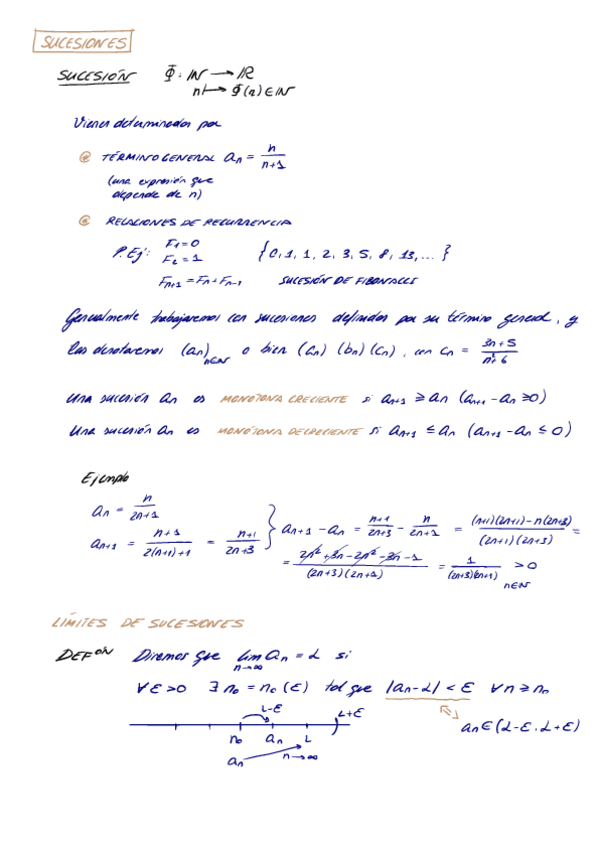 SUCESIONES
SUCESIÓN Φ: ℕ → ℝ
n ↦ Φ(n) ∈ ℕ
Vienen determinadas por
TÉRMINO GENERAL an = n/(n+1)
(una expresión que
depende de n)
RELACIONES DE RECURRENCIA
P.Ej: F1 = 0
F2 = 1 {0, 1, 1, 2, 3, 5, 8, 13, ...}
Fn+1 = Fn + Fn-1 SUCESIÓN DE FIBONACCI
Generalmente trabajaremos con sucesiones definidas por su término general, y
las denotaremos (an)n∈ℕ o bien (an) (bn) (cn), con cn = (3n+5)/(n²+6)
Una sucesión an es MONÓTONA CRECIENTE si an+1 ≥ an (an+1 - an ≥ 0)
Una sucesión an es MONÓTONA DECRECIENTE si an+1 ≤ an (an+1 - an ≤ 0)
Ejemplo
an = n/(2n+1)
an+1 = (n+1)/(2(n+1)+1) = (n+1)/(2n+3) } an+1 - an = (n+1)/(2n+3) - n/(2n+1) = ((n+1)(2n+1) - n(2n+3))/((2n+1)(2n+3)) =
= 1/((2n+3)(2n+1)) > 0
n∈ℕ
LÍMITES DE SUCESIONES
DEFON Diremos que lim n→∞ an = L si
∀ε>0 ∃ n0 = n0(ε) tal que |an - L| < ε ∀n ≥ n0
L-ε L+ε
n0 an L an ∈ (L-ε, L+ε)
an n→∞